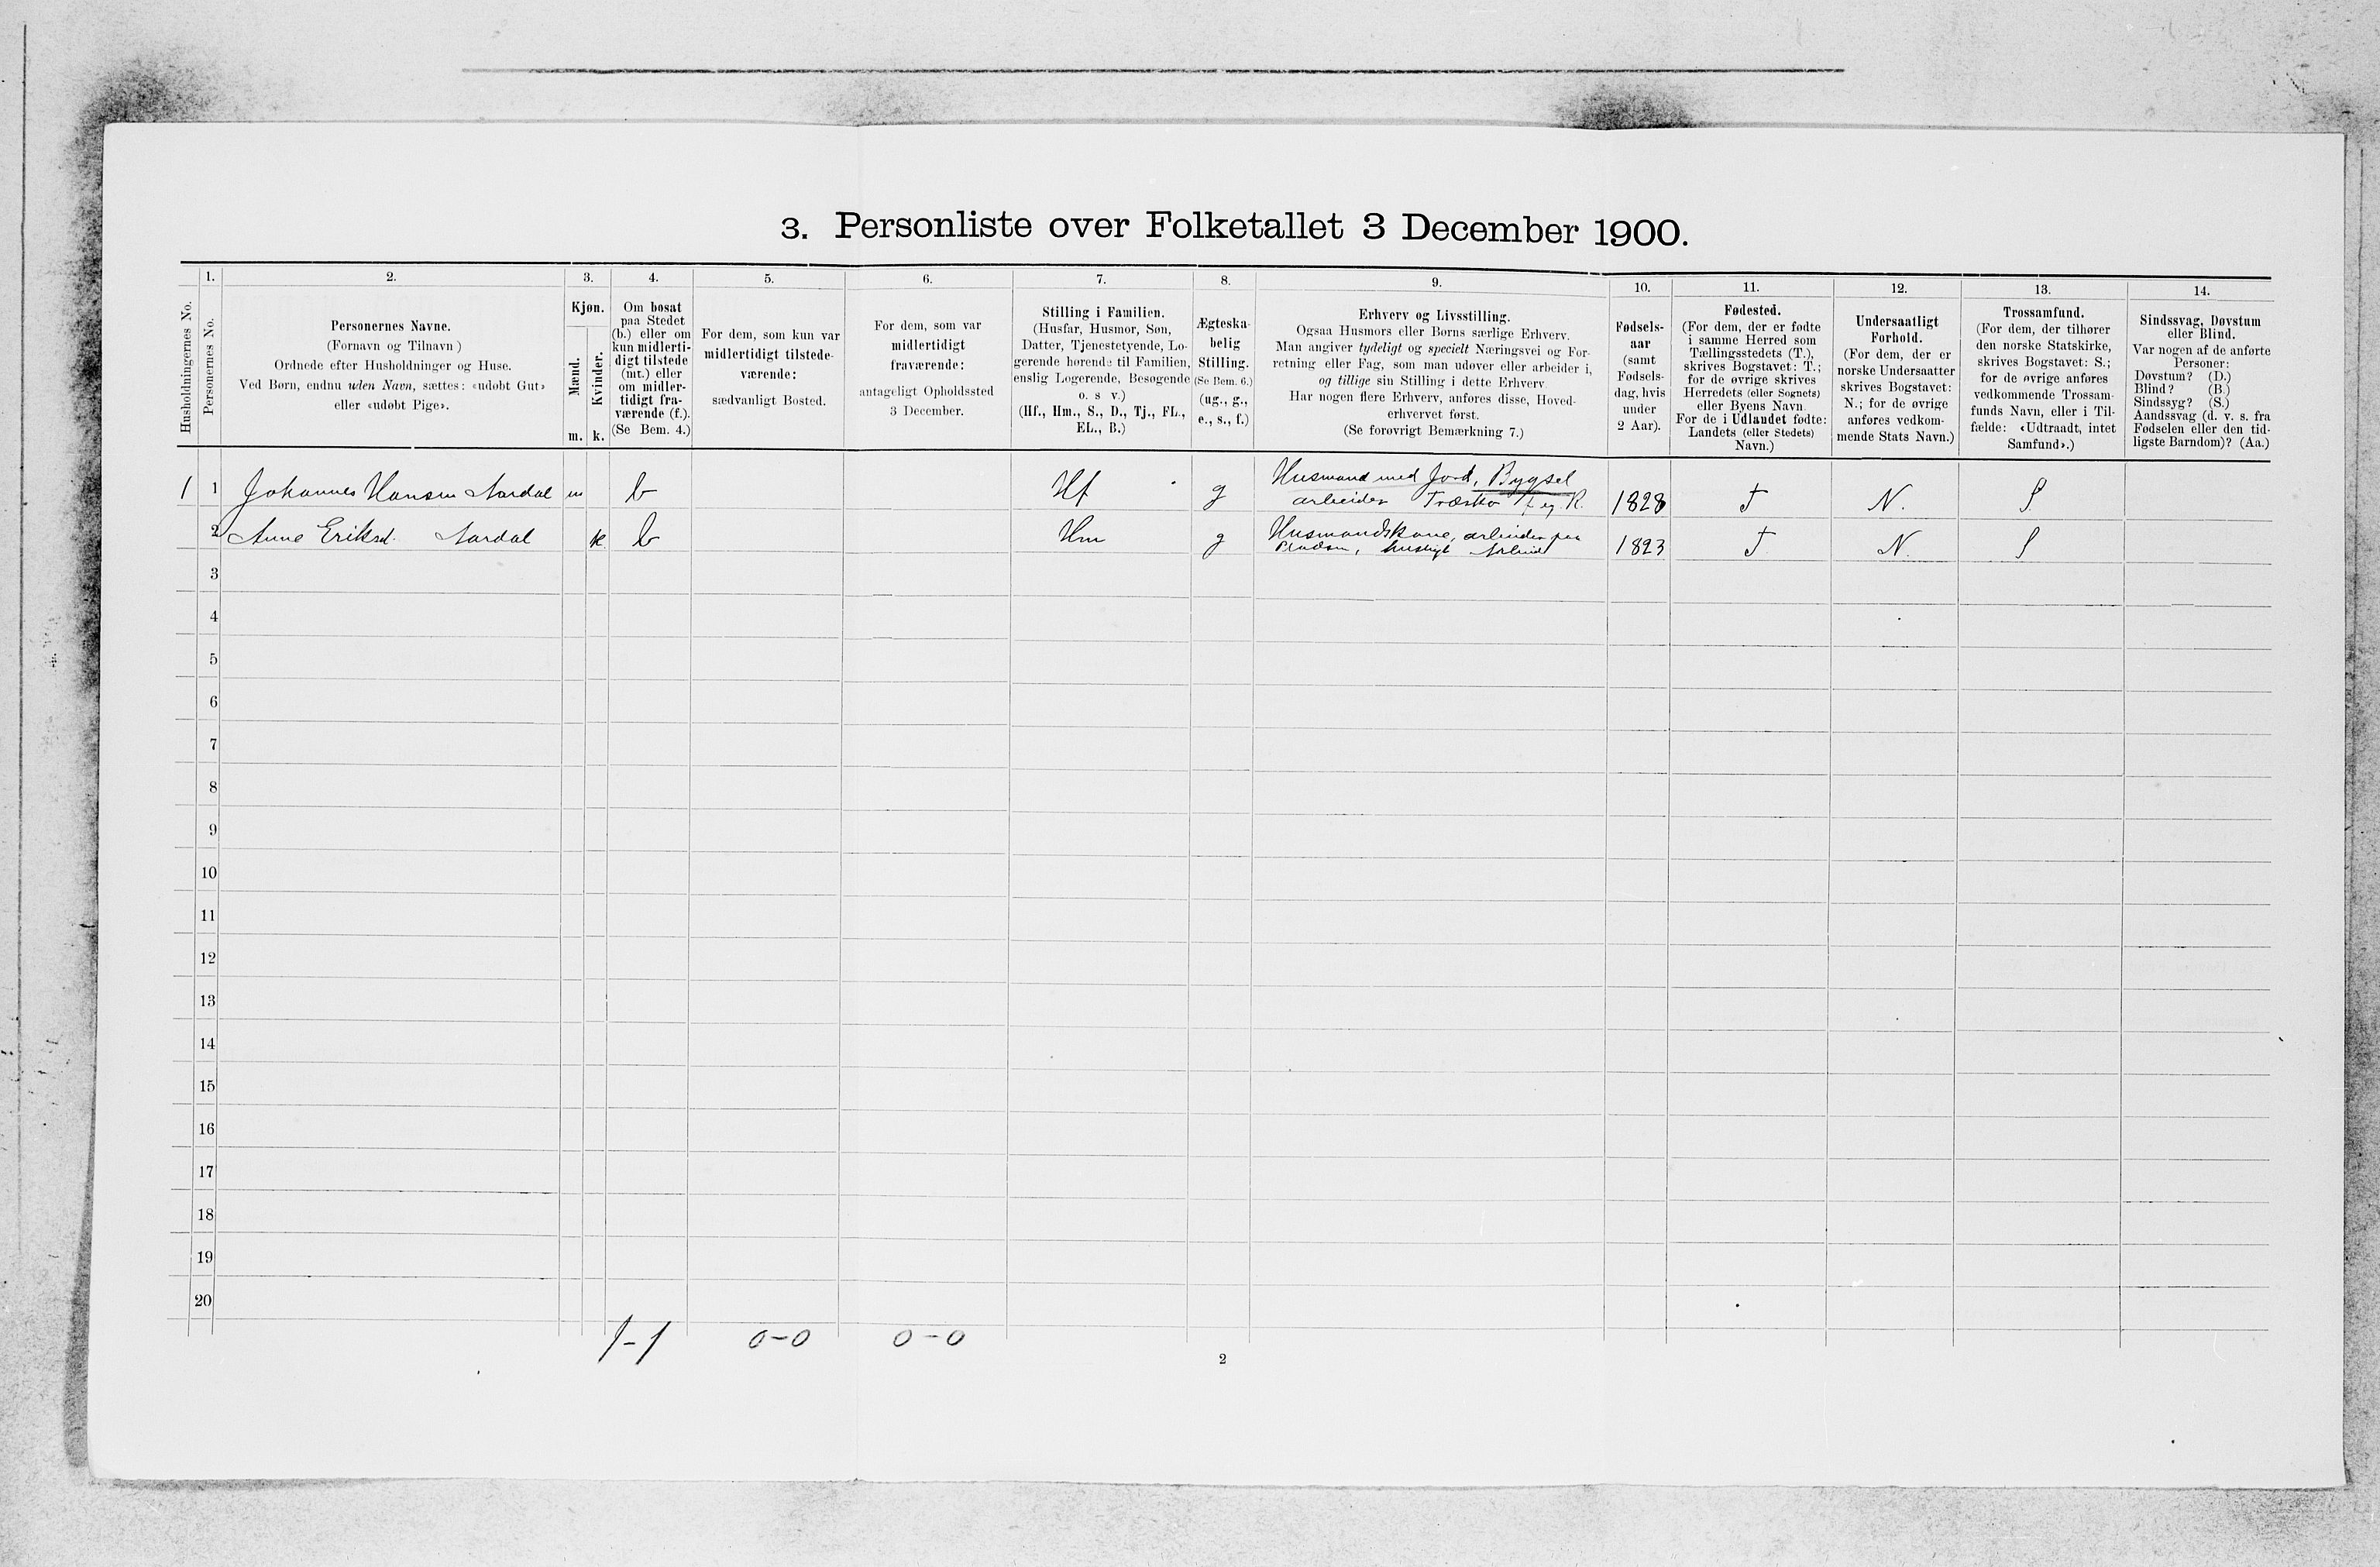 3. Personliste over Folketallet 3 December 1900.
1. 2. 3. 4. 5. 6. 7. 8. 9. 10. 11. 12. 13. 14.
Husholdningernes No.
Personernes No.
Personernes Navne.
(Fornavn og Tilnavn)
Ordnede efter Husholdninger og Huse.
Ved Børn, endnu uden Navn, sættes: «udøbt Gut»
eller «udøbt Pige».
Kjøn.
Mænd.
Kvinder.
m. k.
Om bosat
paa Stedet
(b.) eller om
kun midlerti-
digt tilstede
(mt.) eller
om midler-
tidigt fra-
værende (f.).
(Se Bem. 4.)
For dem, som kun var
midlertidigt tilstede-
værende:
sædvanligt Bosted.
For dem, som var
midlertidigt
fraværende:
antageligt Opholdssted
3 December.
Stilling i Familien.
(Husfar, Husmor, Søn,
Datter, Tjenestetyende, Lo-
gerende hørende til Familien,
enslig Logerende, Besøgende
o. s v.)
(Hf., Hm., S., D., Tj., FL.,
EL., B.)
Ægteska-
belig
Stilling.
(Se Bem. 6.)
(ug., g.,
e., s., f.)
Erhverv og Livsstilling.
Ogsaa Husmors eller Børns særlige Erhverv.
Man angiver tydeligt og specielt Næringsvei og For-
retning eller Fag, som man udøver eller arbeider i,
og tillige sin Stilling i dette Erhverv.
Har nogen flere Erhverv, anføres disse, Hoved-
erhvervet først.
(Se forøvrigt Bemærkning 7.)
Fødsels-
aar
(samt
Fødsels-
dag, hvis
under
2 Aar).
Fødested.
(For dem, der er fødte
i samme Herred som
Tællingsstedets (T.),
skrives Bogstavet: T.;
for de øvrige skrives
Herredets (eller Sognets)
eller Byens Navn.
For de i Udlandet fødte:
Landets (eller Stedets)
Navn.)
Undersaatligt
Forhold.
(For dem, der er
norske Undersaatter
skrives Bogstavet:
N.; for de øvrige
anføres vedkom-
mende Stats Navn.)
Trossamfund.
(For dem, der tilhører
den norske Statskirke,
skrives Bogstavet: S.;
for de øvrige anføres
vedkommende Trossam-
funds Navn, eller i Til-
fælde: «Udtraadt, intet
Samfund».)
Sindssvag, Døvstum
eller Blind.
Var nogen af de anførte
Personer:
Døvstum? (D.)
Blind? (B.)
Sindssyg? (S.)
Aandssvag (d. v. s. fra
Fødselen eller den tid-
ligste Barndom)? (Aa.)
1 1 Johannes Hansen Aardal m b Hf g Husmand med Jord, Bygsel
arbeider Træsko R. 1828 T N. S
2 Anne Eriksd. Aardal k b Hm g Husmandskone, arbeider paa
husligt Arbeid 1823 T N. S
3
4
5
6
7
8
9
10
11
12
13
14
15
16
17
18
19
20
1-1 0-0 0-0
2